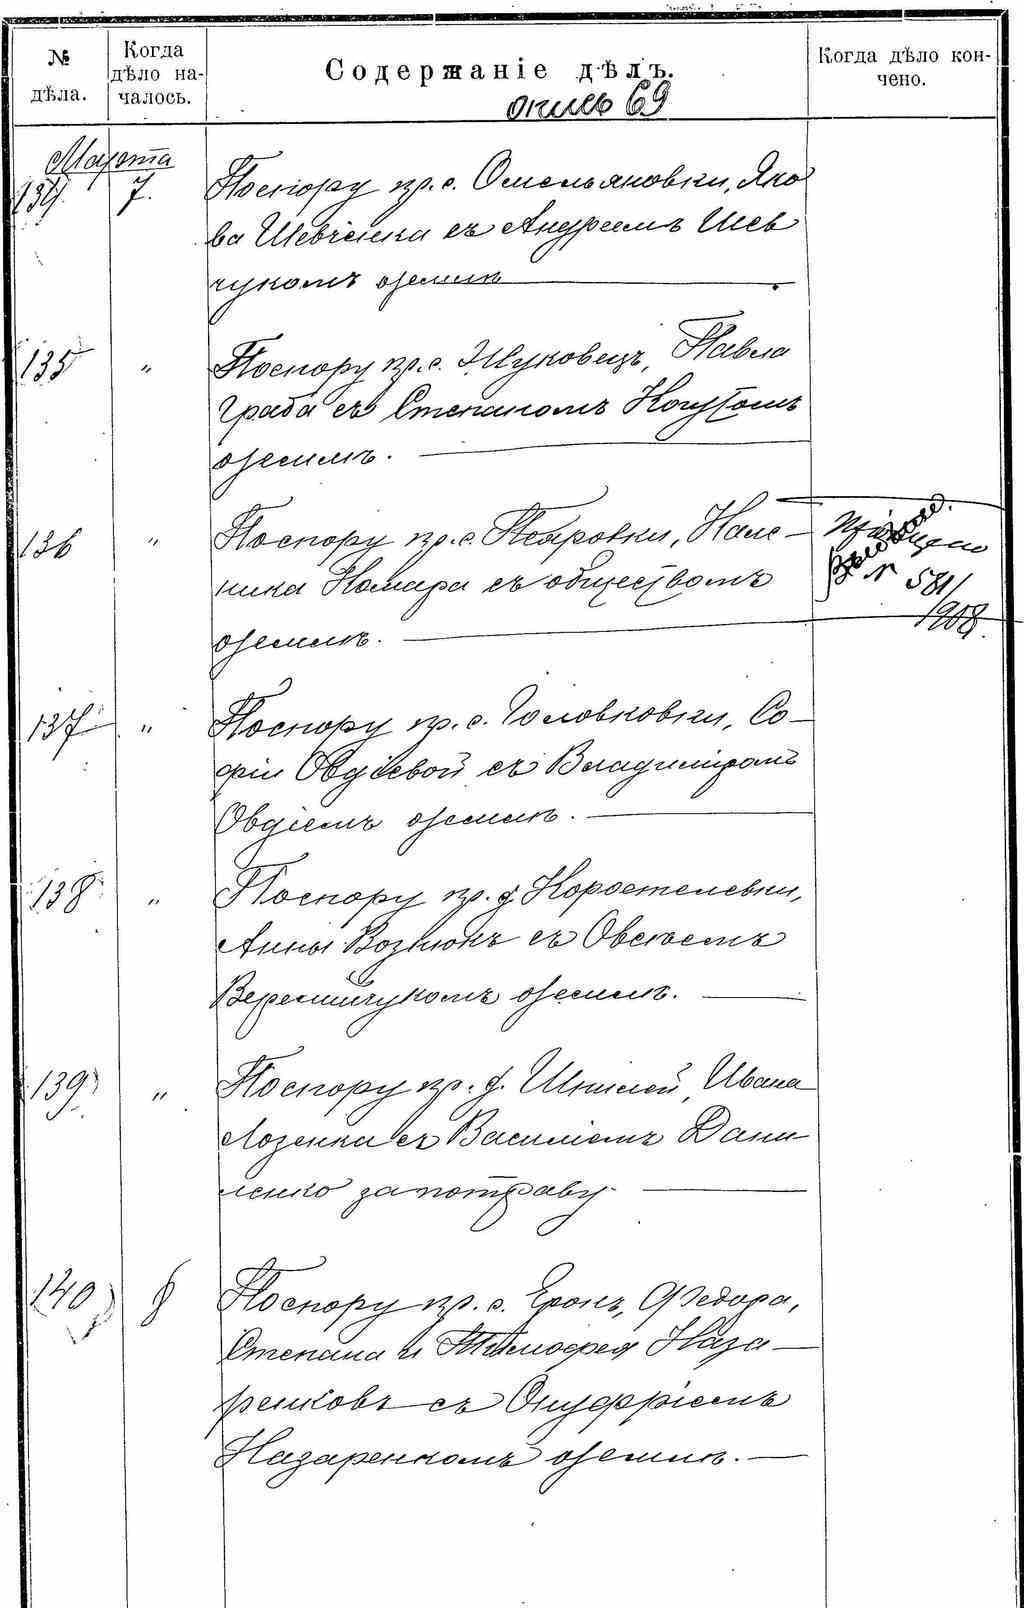 № дѣла.
Когда дѣло на-
чалось.
Содержаніе дѣлъ.
Когда дѣло кон-
чено.
опись 69
Марта
134 7. По спору кр. с. Омельяновки, Яко
ва Шевченка съ Андреемъ Шев
чукомъ о землѣ
135 " По спору кр. с. Жуковецъ, Павла
Граба съ Степаномъ Когутомъ
о землѣ.
136 " По спору кр. с. Петровки,
ника Комара съ обществомъ
о землѣ.
№ 581/
1908.
137 " По спору кр. с. Головковки, Со-
фіи Овдіевой съ Владиміромъ
Овдіемъ о землѣ.
138 " По спору кр. д. Коростелевки,
Анны Вознюкъ съ Овсіемъ
Веремійчукомъ о землѣ.
139 " По спору кр. д. Шкилей, Ивана
Лозенка съ Василіемъ Дани
ленко за потраву.
140 8 По спору кр. с. Ерокъ, Федора,
Степана и Тимофея Наза-
ренковъ съ Онуфріемъ
Назаренкомъ о землѣ.